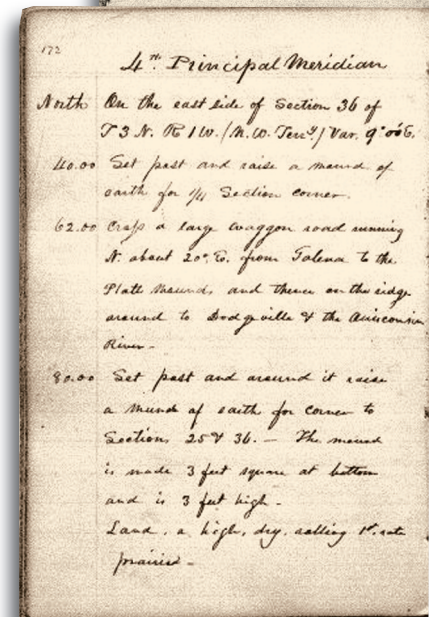 172
4th Principal Meridian
North On the east side of Section 36 of
T 3 N. R 1 W. (N. W. Tery) Var. 9° 00' E.
40.00 Set post and raise a mound of
earth for 1/4 Section corner.
62.00 Cross a large waggon road running
N. about 20° E. from Galena to the
Platt Mounds and thence on the ridge
around to Dodgeville & the Ouisconsin
River -
80.00 Set post and around it raise
a mund of earth for corner to
Sections 25 & 36. - The mound
is made 3 feet square at bottom
and is 3 feet high -
Land, a high, dry, rolling 1st rate
prairie -